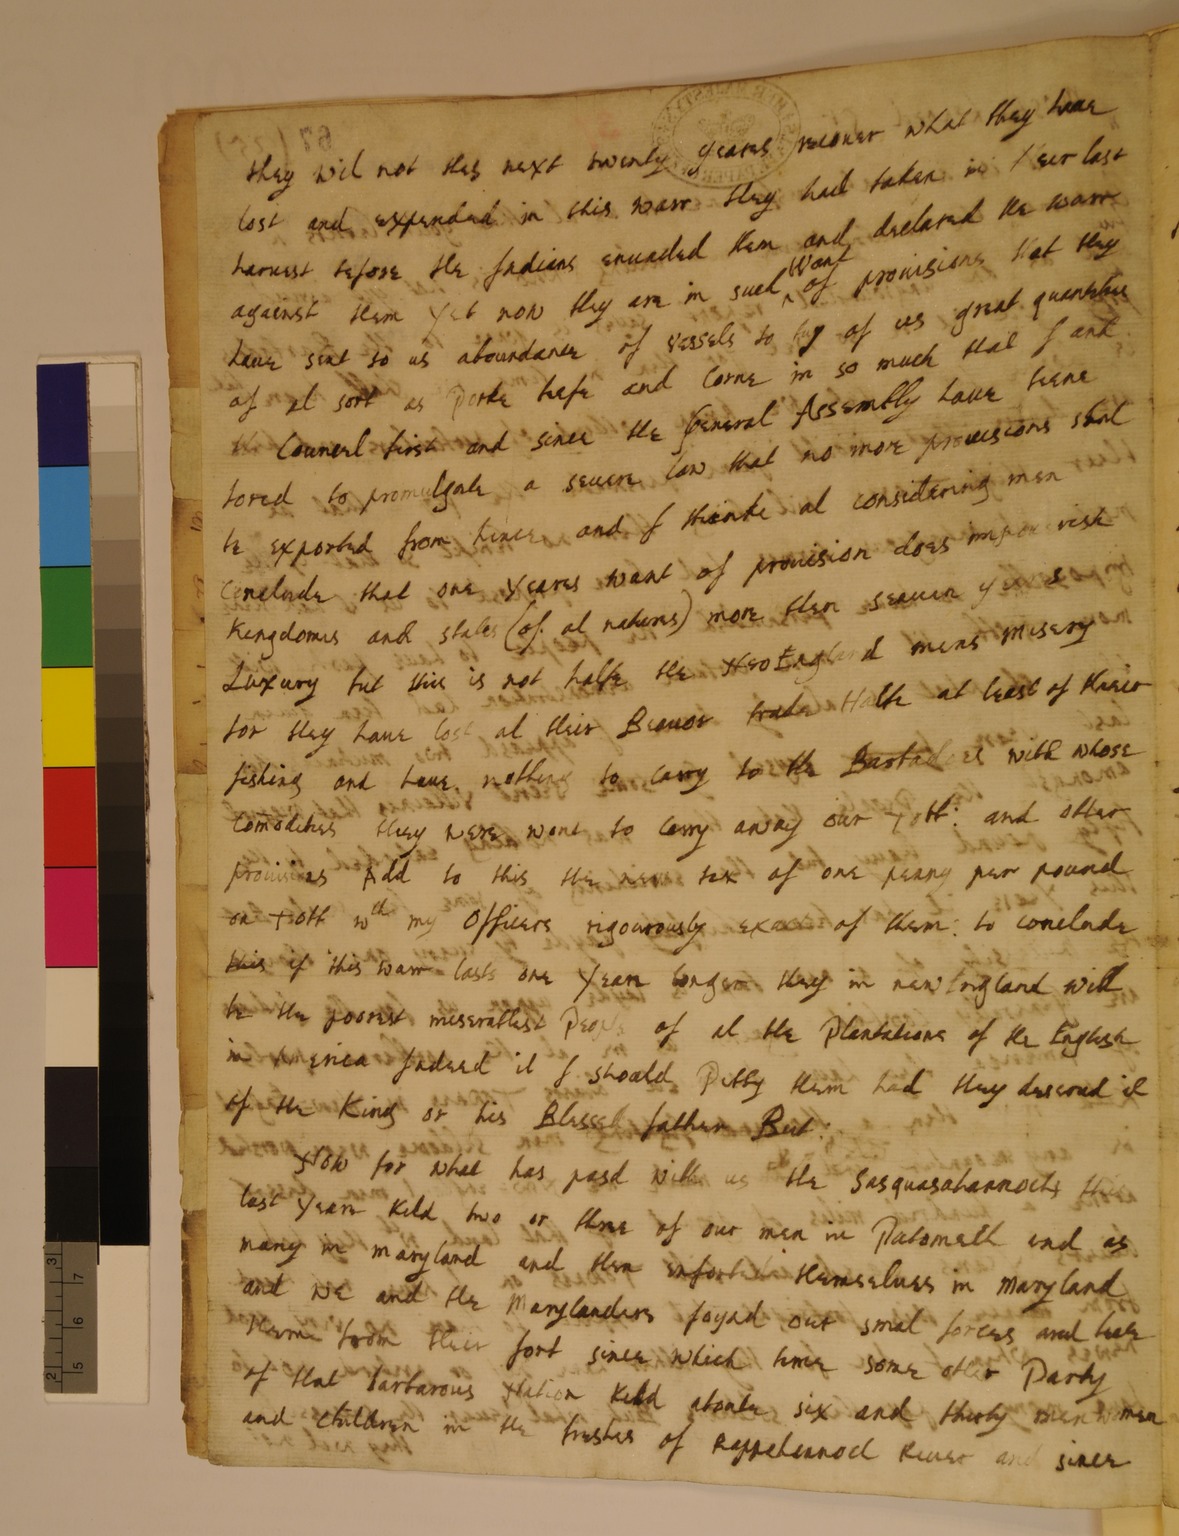 they wil not this next twenty yeares recouer what they haue
lost and expended in this warr they had taken in their last
haruest before the Indians enuaded them and declared the warr
against them yet now they are in such Want of provisions that they
haue sent to us aboundance of vessels to buy of us great quantities
of al sort as Porke beefe and Corne in so much that I and
Councel first and since the General Assembly haue beene
forced to promulgate a seuere law that no more provisions shal
be exported from hence and I thinke al considering men
conclude that one yeares want of provision does impouerish
Kingdomes and states (of al natures) more then seauen yeares
Luxury but this is not halfe the New England mens misery
for they haue lost al their Beauor trade Halfe at least of their
fishing and haue nothing to carry to the Barbados with whose
comodities they were wont to carry away our Tobb: and other
provisions Add to this the new tax of one penny per pound
on Tobb wth my Officers rigourously exact of them: to conclude
this if this warr lasts one yeare longer they in new England will
be the poorest miserablest People of al the Plantations of the English
in America Indeed it I should Pitty them had they deserved it
of the King or his Blessed father But:
Now for what has pasd with us the Sasquasahannocks this
last yeare Kild two or three of our men in Patomack and as
many in maryland and then enforted themselues in maryland
and we and the Marylanders joyad our smal forces and beat
them from their fort since which time some other Party
of that barbarous Nation Kild aboute six and thirty men women
and Children in the freshes of Rappahannock River and since